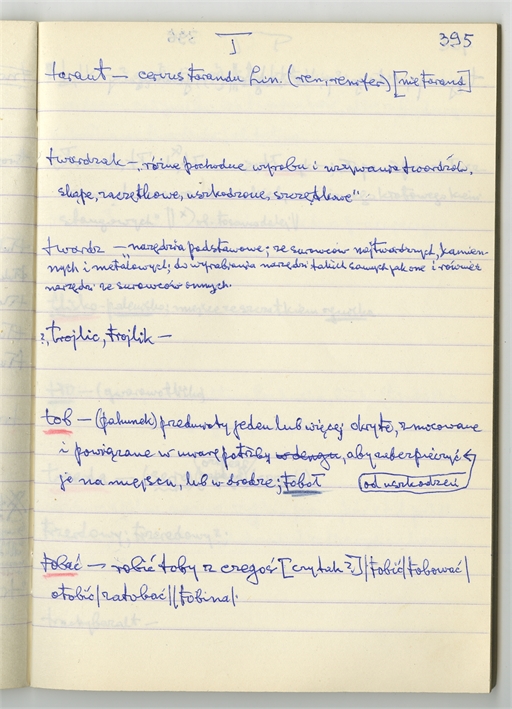 T 395
taraut – cervus tarandu Lin. (ren, renifer) [nie tarand]
twardzak – „różne pochodne wyrobu i używania twardzów,
skape, zaczętkowe, uszkodzone, szczętkowe"
twardz – narzędzia podstawowe; ze surowców najtwardszych, kamien-
nych i metalowych; do wyrabiania narzędzi takich samych jak one i również
narzędzi ze surowców innych.
?, trojlic, trojlik –
tob – (pakunek) przedmioty jeden lub więcej okryte, zmocowane
i powiązane w miarę potrzby, aby zabezpieczyć
je na miejscu, lub w drodze; tobot od uszkodzeń
tobać – robić toby z czegoś [czy tak?] | tobić | tobować |
otobić | zatobać || tobina |.